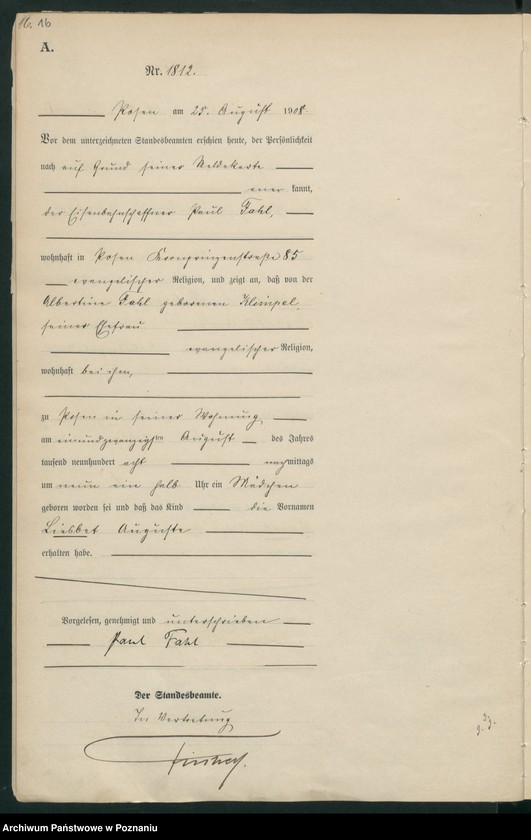 16. 16
A.
Nr. 1812.
Posen am 25. August 1908.
Vor dem unterzeichneten Standesbeamten erschien heute, der Persönlichkeit
nach auf Grund seiner Meldekarte
aner kannt,
der Eisenbahnschaffner Paul Fahl,
wohnhaft in Posen Kronprinzenstraße 85
evangelischer Religion, und zeigt an, daß von der
Albertine Fahl geborenen Klempel,
seiner Ehefrau
evangelischer Religion,
wohnhaft bei ihm,
zu Posen in seiner Wohnung
am einundzwanzigsten August des Jahres
tausend neunhundert acht mittags
um neun ein halb Uhr ein Mädchen
geboren worden sei und daß das Kind die Vornamen
Liesbet Auguste
erhalten habe.
Vorgelesen, genehmigt und unterschrieben
Paul Fahl
Der Standesbeamte.
In Vertretung
Archiwum Państwowe w Poznaniu